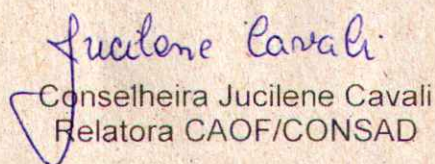 Jucilene Cavali
Conselheira Jucilene Cavali
Relatora CAOF/CONSAD